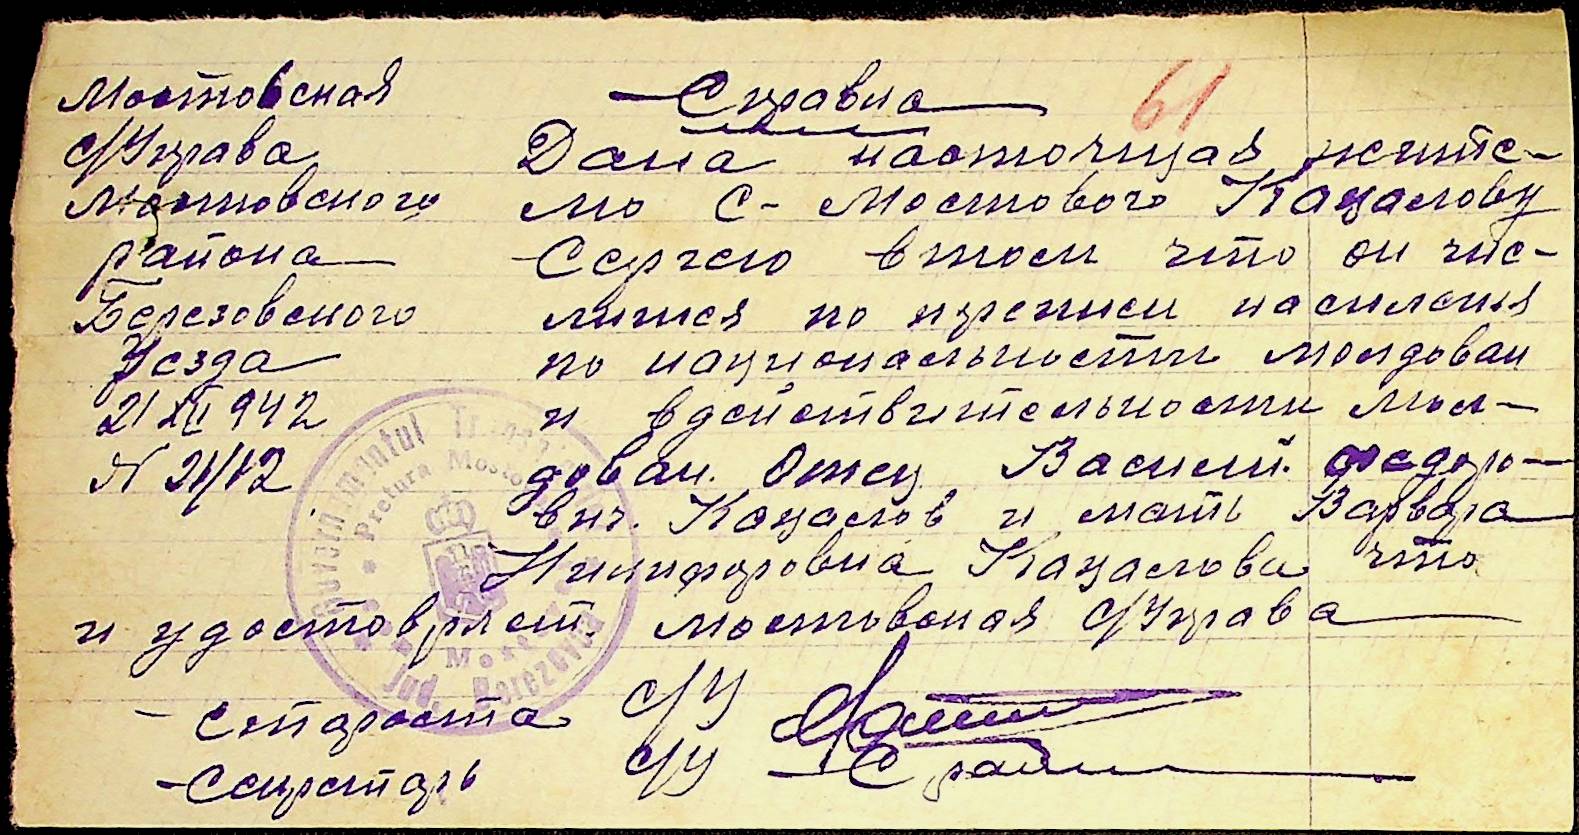 Мостовская
с/Управа
Мостовского
района
Березовского
Уезда
21 XII 942
N 21/12
Справка
61
Дана настоящая жите-
лю с- Мостового Кацалову
Сергею в том что он чис-
лится по переписи насиления
по национальности молдован
и в действительности мол-
дован. Отец Василий Федоро-
вич. Кацалов и мать Варвара
Никифоровна Кацалова что
и удостовряет. Мостовская с/Управа
Староста с/У
Секретарь с/У
Guvernamentul
Pretura Mostovoi
Jud. Berezovca